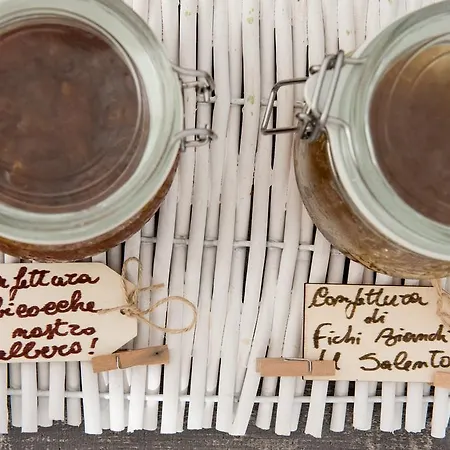 nfettura
icocche
nostro
albero!
Confettura
di
Fichi Bianchi
Salento